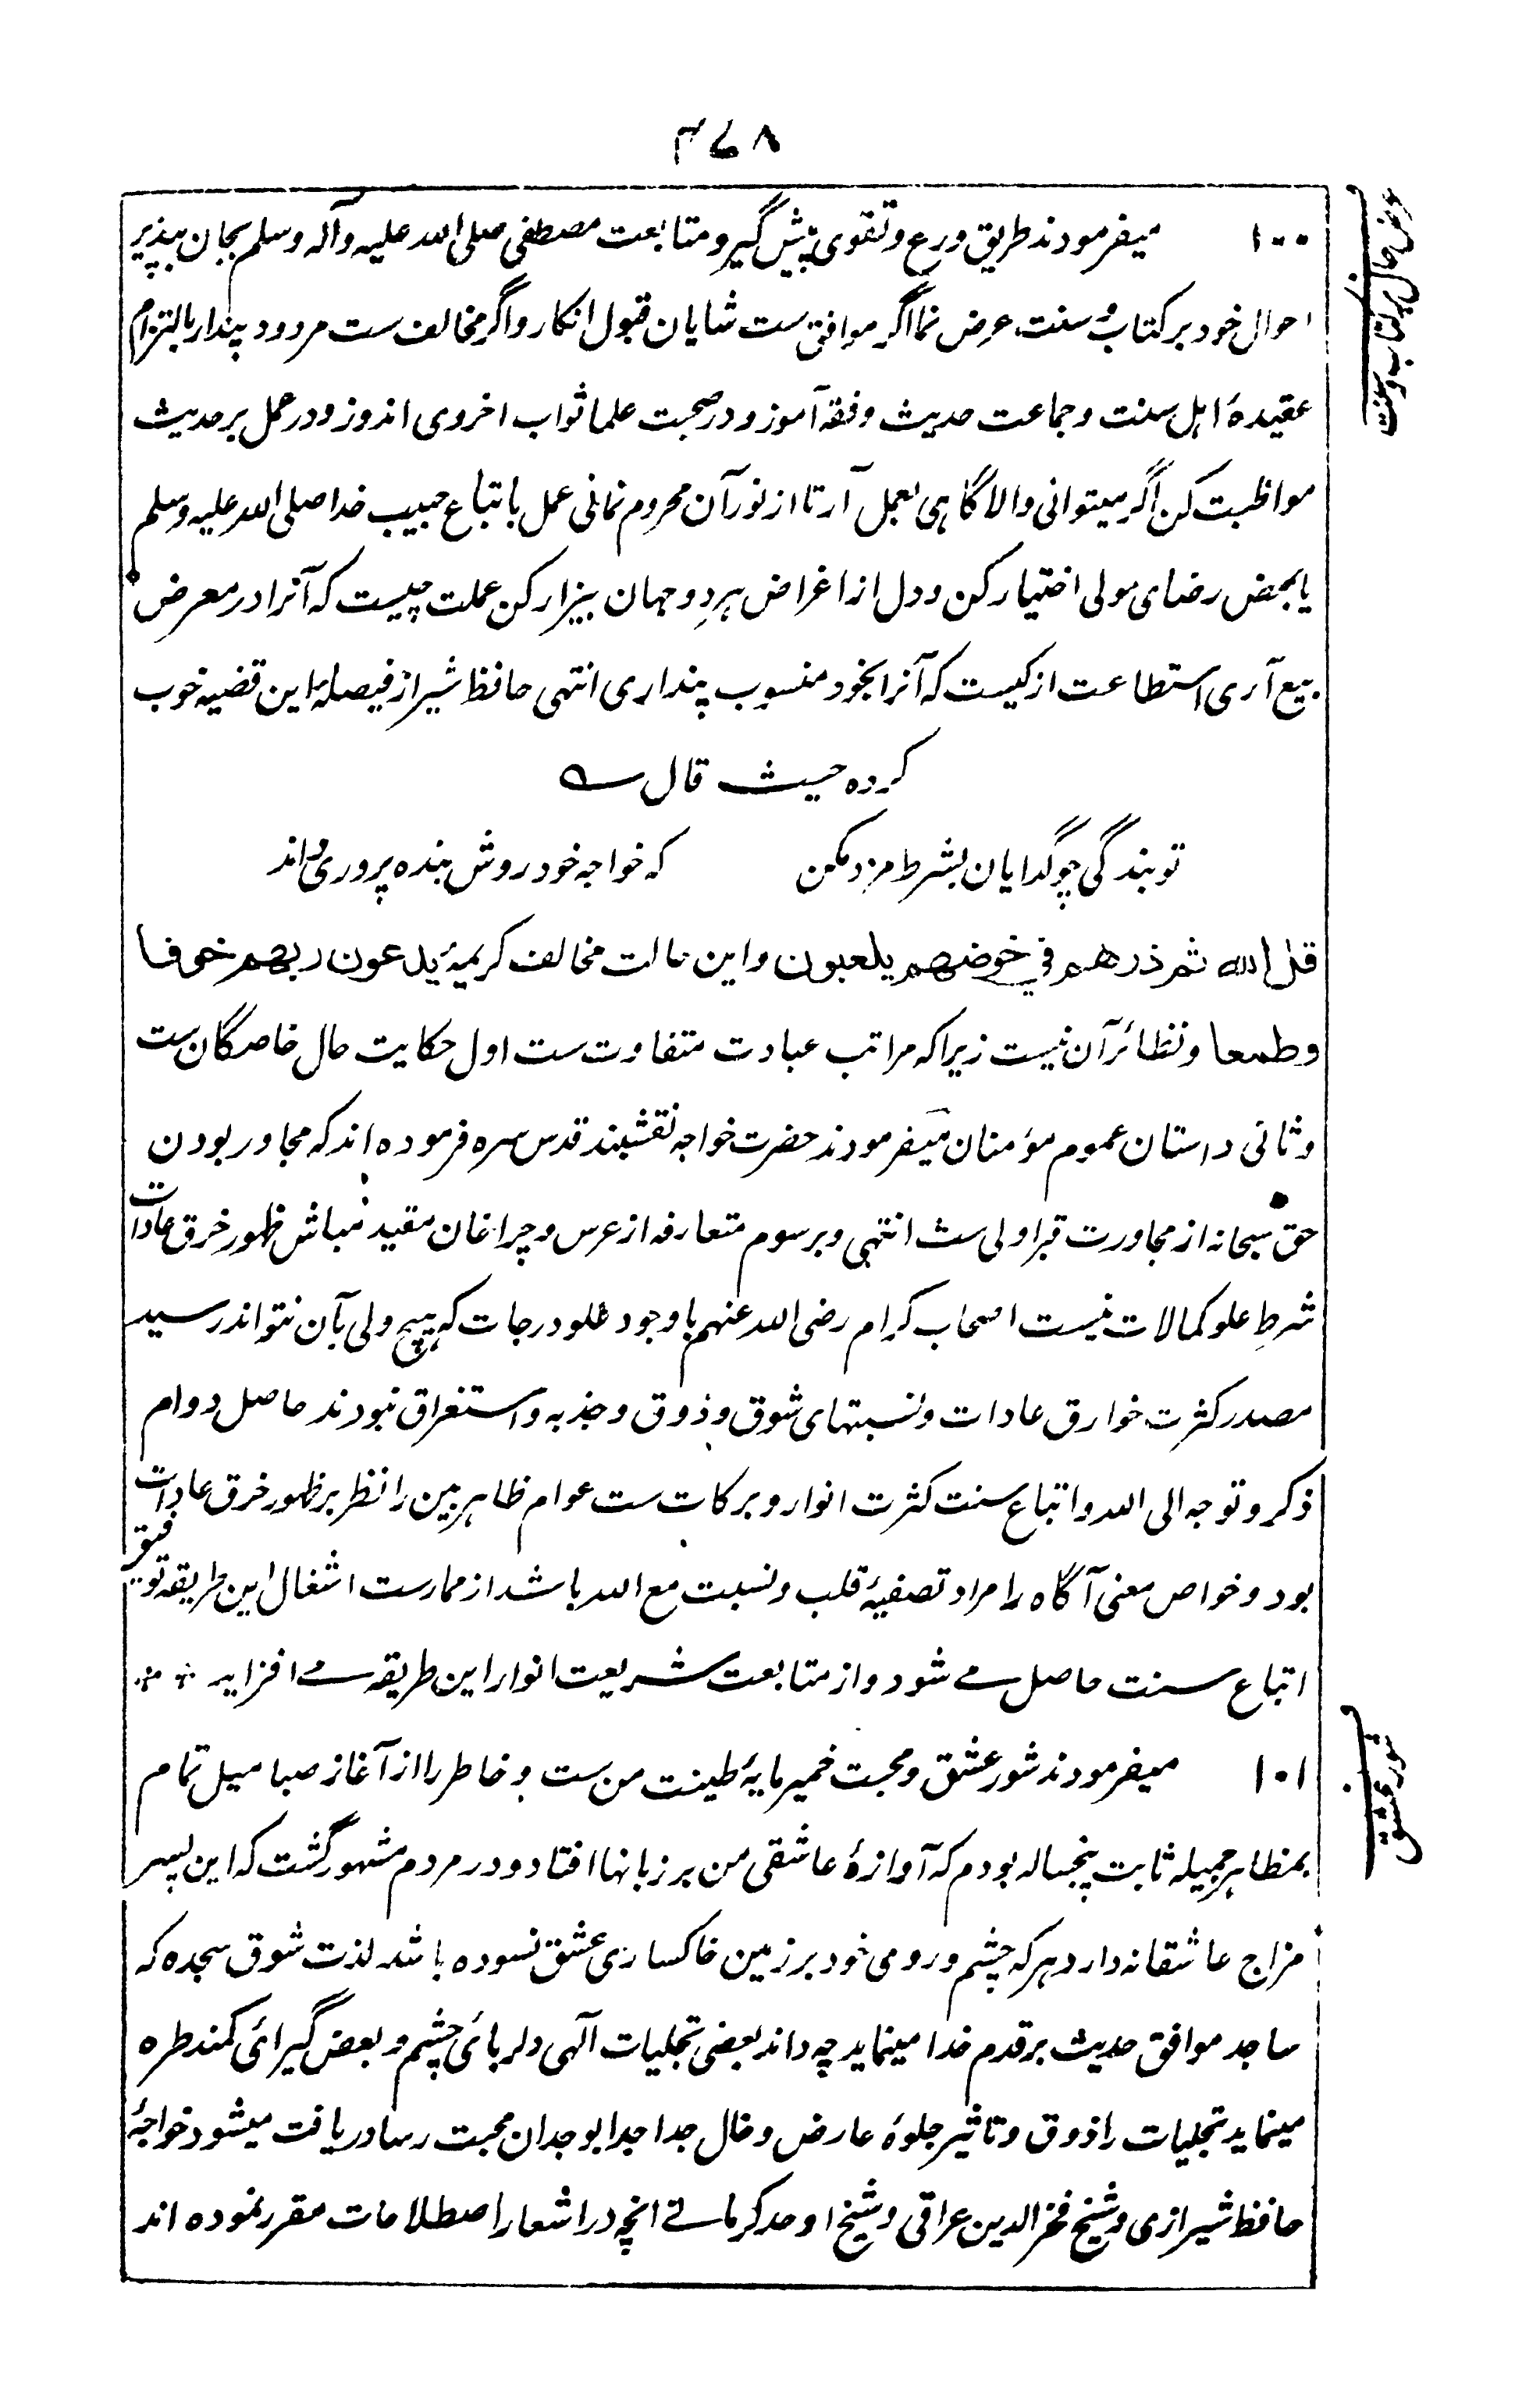 ۳۷۸
عرض حال بر کتاب و سنت
۱۰۰ میفرمودند طریق ورع و تقوی پیش گیر و متابعت مصطفی صلی الله علیه وآله وسلم بجان بپذیر
احوال خود بر کتاب و سنت عرض نما اگر موافق ست شایان قبول انکار و اگر مخالف ست مردود پندار بالتزام
عقیدۀ اہل سنت و جماعت حدیث و فقه آموز و در صحبت علما ثواب اخروی اندوز و در عمل بر حدیث
مواظبت کن اگر میتوانی والا گاہی بعمل آر تا از نور آن محروم نمانی عمل باتباع حبیب خدا صلی الله علیه وسلم
یا بمحض رضای مولی اختیار کن و دل از اغراض ہر دو جہان بیزار کن عملت چیست که آنرا در معرض
بیع آری استطاعت از کیست که آنرا بخود منسوب پنداری انتہی حافظ شیراز فیصلۀ این قضیه خوب
کرده حیث قال ؎
تو بندگی چو گدایان بشرط مزد مکن که خواجه خود روش بنده پروری داند
قل الله ثم ذرهم في خوضهم يلعبون و این حالت مخالف کریمۀ یدعون ربهم خوفا
وطمعا و نظائر آن نیست زیرا که مراتب عبادت متفاوت ست اول حکایت حال خاصگان ست
و ثانی داستان عموم مؤمنان میفرمودند حضرت خواجه نقشبند قدس سره فرموده اند که مجاور بودن
حق سبحانه از مجاورت قبر اولی ست انتہی و برسوم متعارفه از عرس و چراغان مقید مباش ظهور خرق عادات
شرط علو کمالات نیست اصحاب کرام رضی الله عنہم باوجود علو درجات که ہیچ ولی بآن نتواند رسید
مصدر کثرت خوارق عادات و نسبتهای شوق و ذوق و جذبه و استغراق نبودند حاصل دوام
ذکر و توجه الی الله و اتباع سنت کثرت انوار و برکات ست عوام ظاہر بین را نظر بر ظهور خرق عادات
بود و خواص معنی آگاه را مراد تصفیۀ قلب و نسبت مع الله باشد از ممارست اشغال این طریقه توفیق
اتباع سنت حاصل مے شود و از متابعت شریعت انوار این طریقه مے افزاید
شور عشق
۱۰۱ میفرمودند شور عشق و محبت خمیر مایۀ طینت من ست و خاطر را از آغاز صبا میل تمام
بمظاہر جمیله ثابت پنجساله بودم که آوازۀ عاشقی من بر زبانہا افتاد و در مردم مشہور گشت که این پسر
مزاج عاشقانه دارد ہر که چشم و روی خود بر زمین خاکساری عشق نسوده باشد لذت شوق سجده که
ساجد موافق حدیث بر قدم خدا مینماید چه داند بعضی تجلیات آلهی دلربائی چشم و بعض گیرائی کمند طره
مینماید تجلیات را ذوق و تاثیر جلوۀ عارض و خال جدا جدا بوجدان محبت رسا دریافت میشود خواجۀ
حافظ شیرازی و شیخ فخر الدین عراقی و شیخ اوحد کرمانے انچه در اشعار اصطلاحات مقرر نموده اند